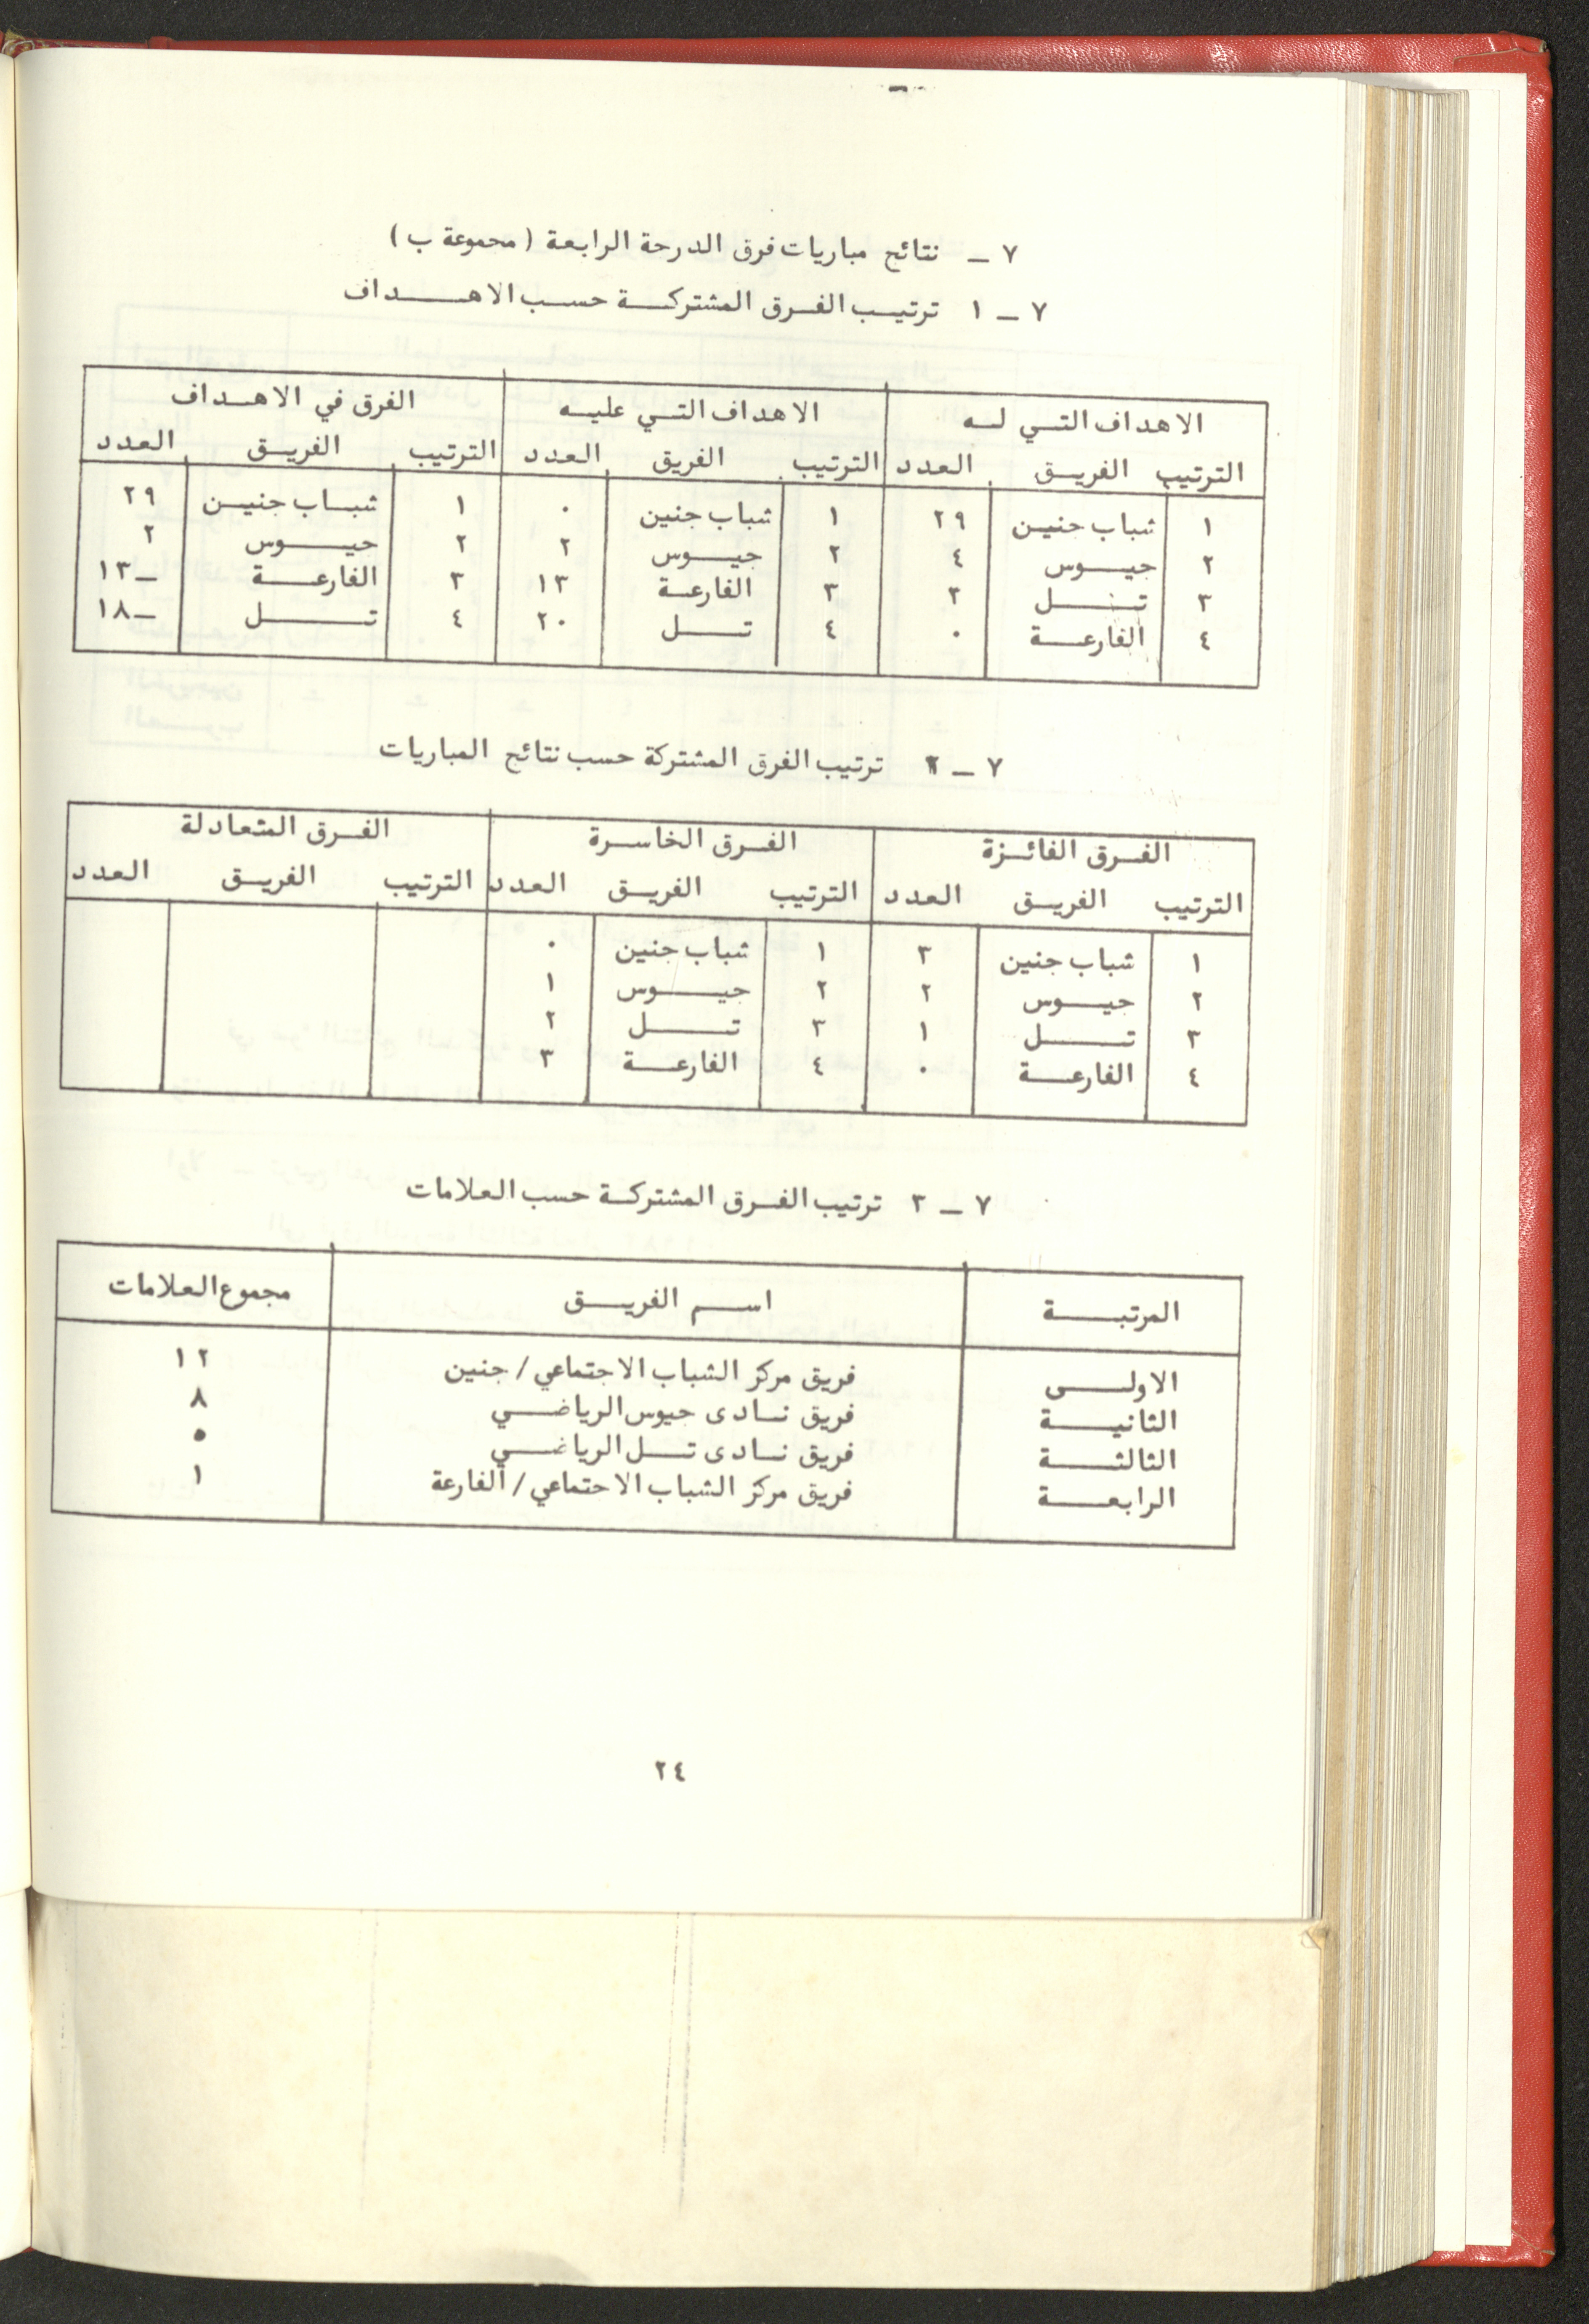 ٧ ــ نتائج مباريات فرق الدرجة الرابعة ( مجموعة ب )
٧ ــ ١ ترتيب الفرق المشتركة حسب الاهداف
الاهداف التي له الاهداف التي عليه الفرق في الاهداف
الترتيب الفريق العدد الترتيب الفريق العدد الترتيب الفريق العدد
١ شباب جنين ٢٩ ١ شباب جنين ٠ ١ شباب جنين ٢٩
٢ جيوس ٤ ٢ جيوس ٢ ٢ جيوس ٢
٣ تل ٢ ٣ الفارعة ١٣ ٣ الفارعة ــ١٣
٤ الفارعة ٠ ٤ تل ٢٠ ٤ تل ــ١٨
٧ ــ ٢ ترتيب الفرق المشتركة حسب نتائج المباريات
الفرق الفائزة الفرق الخاسرة الفرق المتعادلة
الترتيب الفريق العدد الترتيب الفريق العدد الترتيب الفريق العدد
١ شباب جنين ٣ ١ شباب جنين ٠
٢ جيوس ٢ ٢ جيوس ١
٣ تل ١ ٣ تل ٢
٤ الفارعة ٠ ٤ الفارعة ٣
٧ ــ ٣ ترتيب الفرق المشتركة حسب العلامات
المرتبة اسم الفريق مجموع العلامات
الاولى فريق مركز الشباب الاجتماعي / جنين ١٢
الثانية فريق نادى جيوس الرياضي ٨
الثالثة فريق نادى تل الرياضي ٥
الرابعة فريق مركز الشباب الاجتماعي / الفارعة ١
٢٤